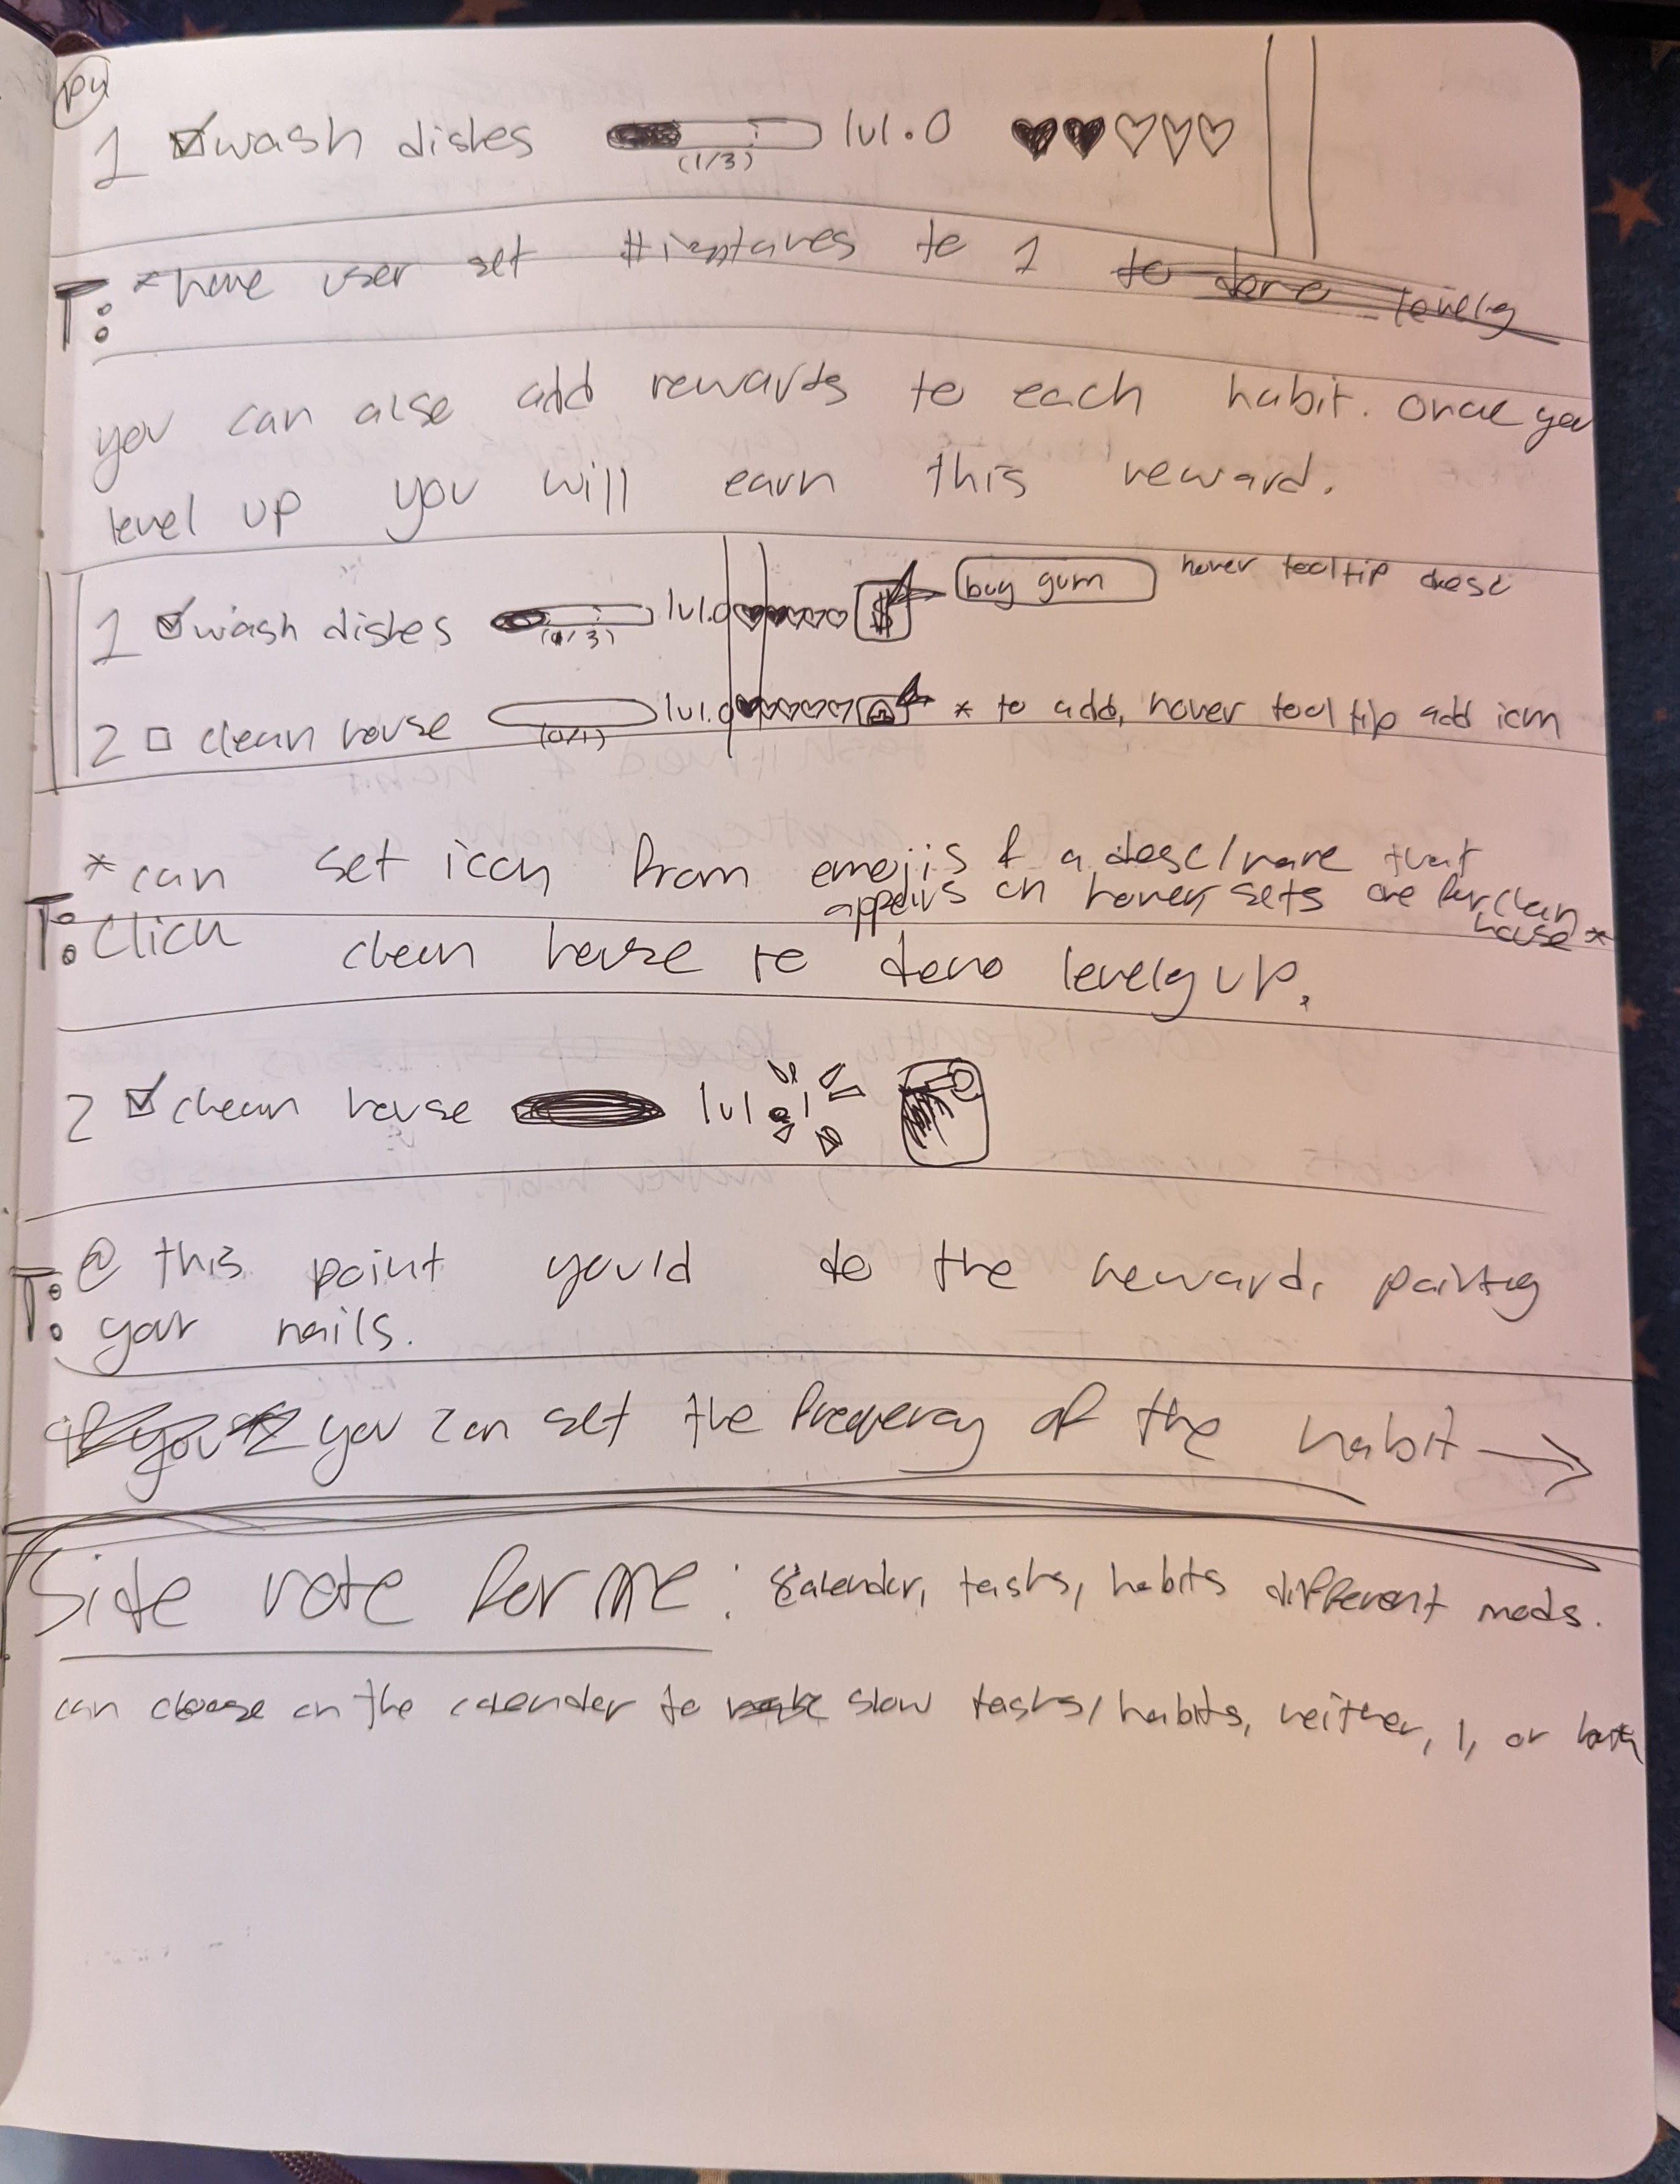 P4
1 wash dishes (1/3) lvl.0
T: *have user set #instances to 1 to demo levelg
you can also add rewards to each habit. Once you
level up you will earn this reward.
1 wash dishes (1/3) lvl.0 $ buy gum hover tooltip desc
2 clean house (0/1) lvl.0 * to add, hover tool tip add icon
*can set icon from emojis & a desc/name that
appears on hover, sets one for clean
house *
T: Click clean house to demo levelg up.
2 clean house lvl.1
T: @ this point you'd do the reward, painting
your nails.
you can set the frequency of the habit →
Side note for me: calender, tasks, habits different mods.
can choose on the calender to show tasks/habits, neither, 1, or both